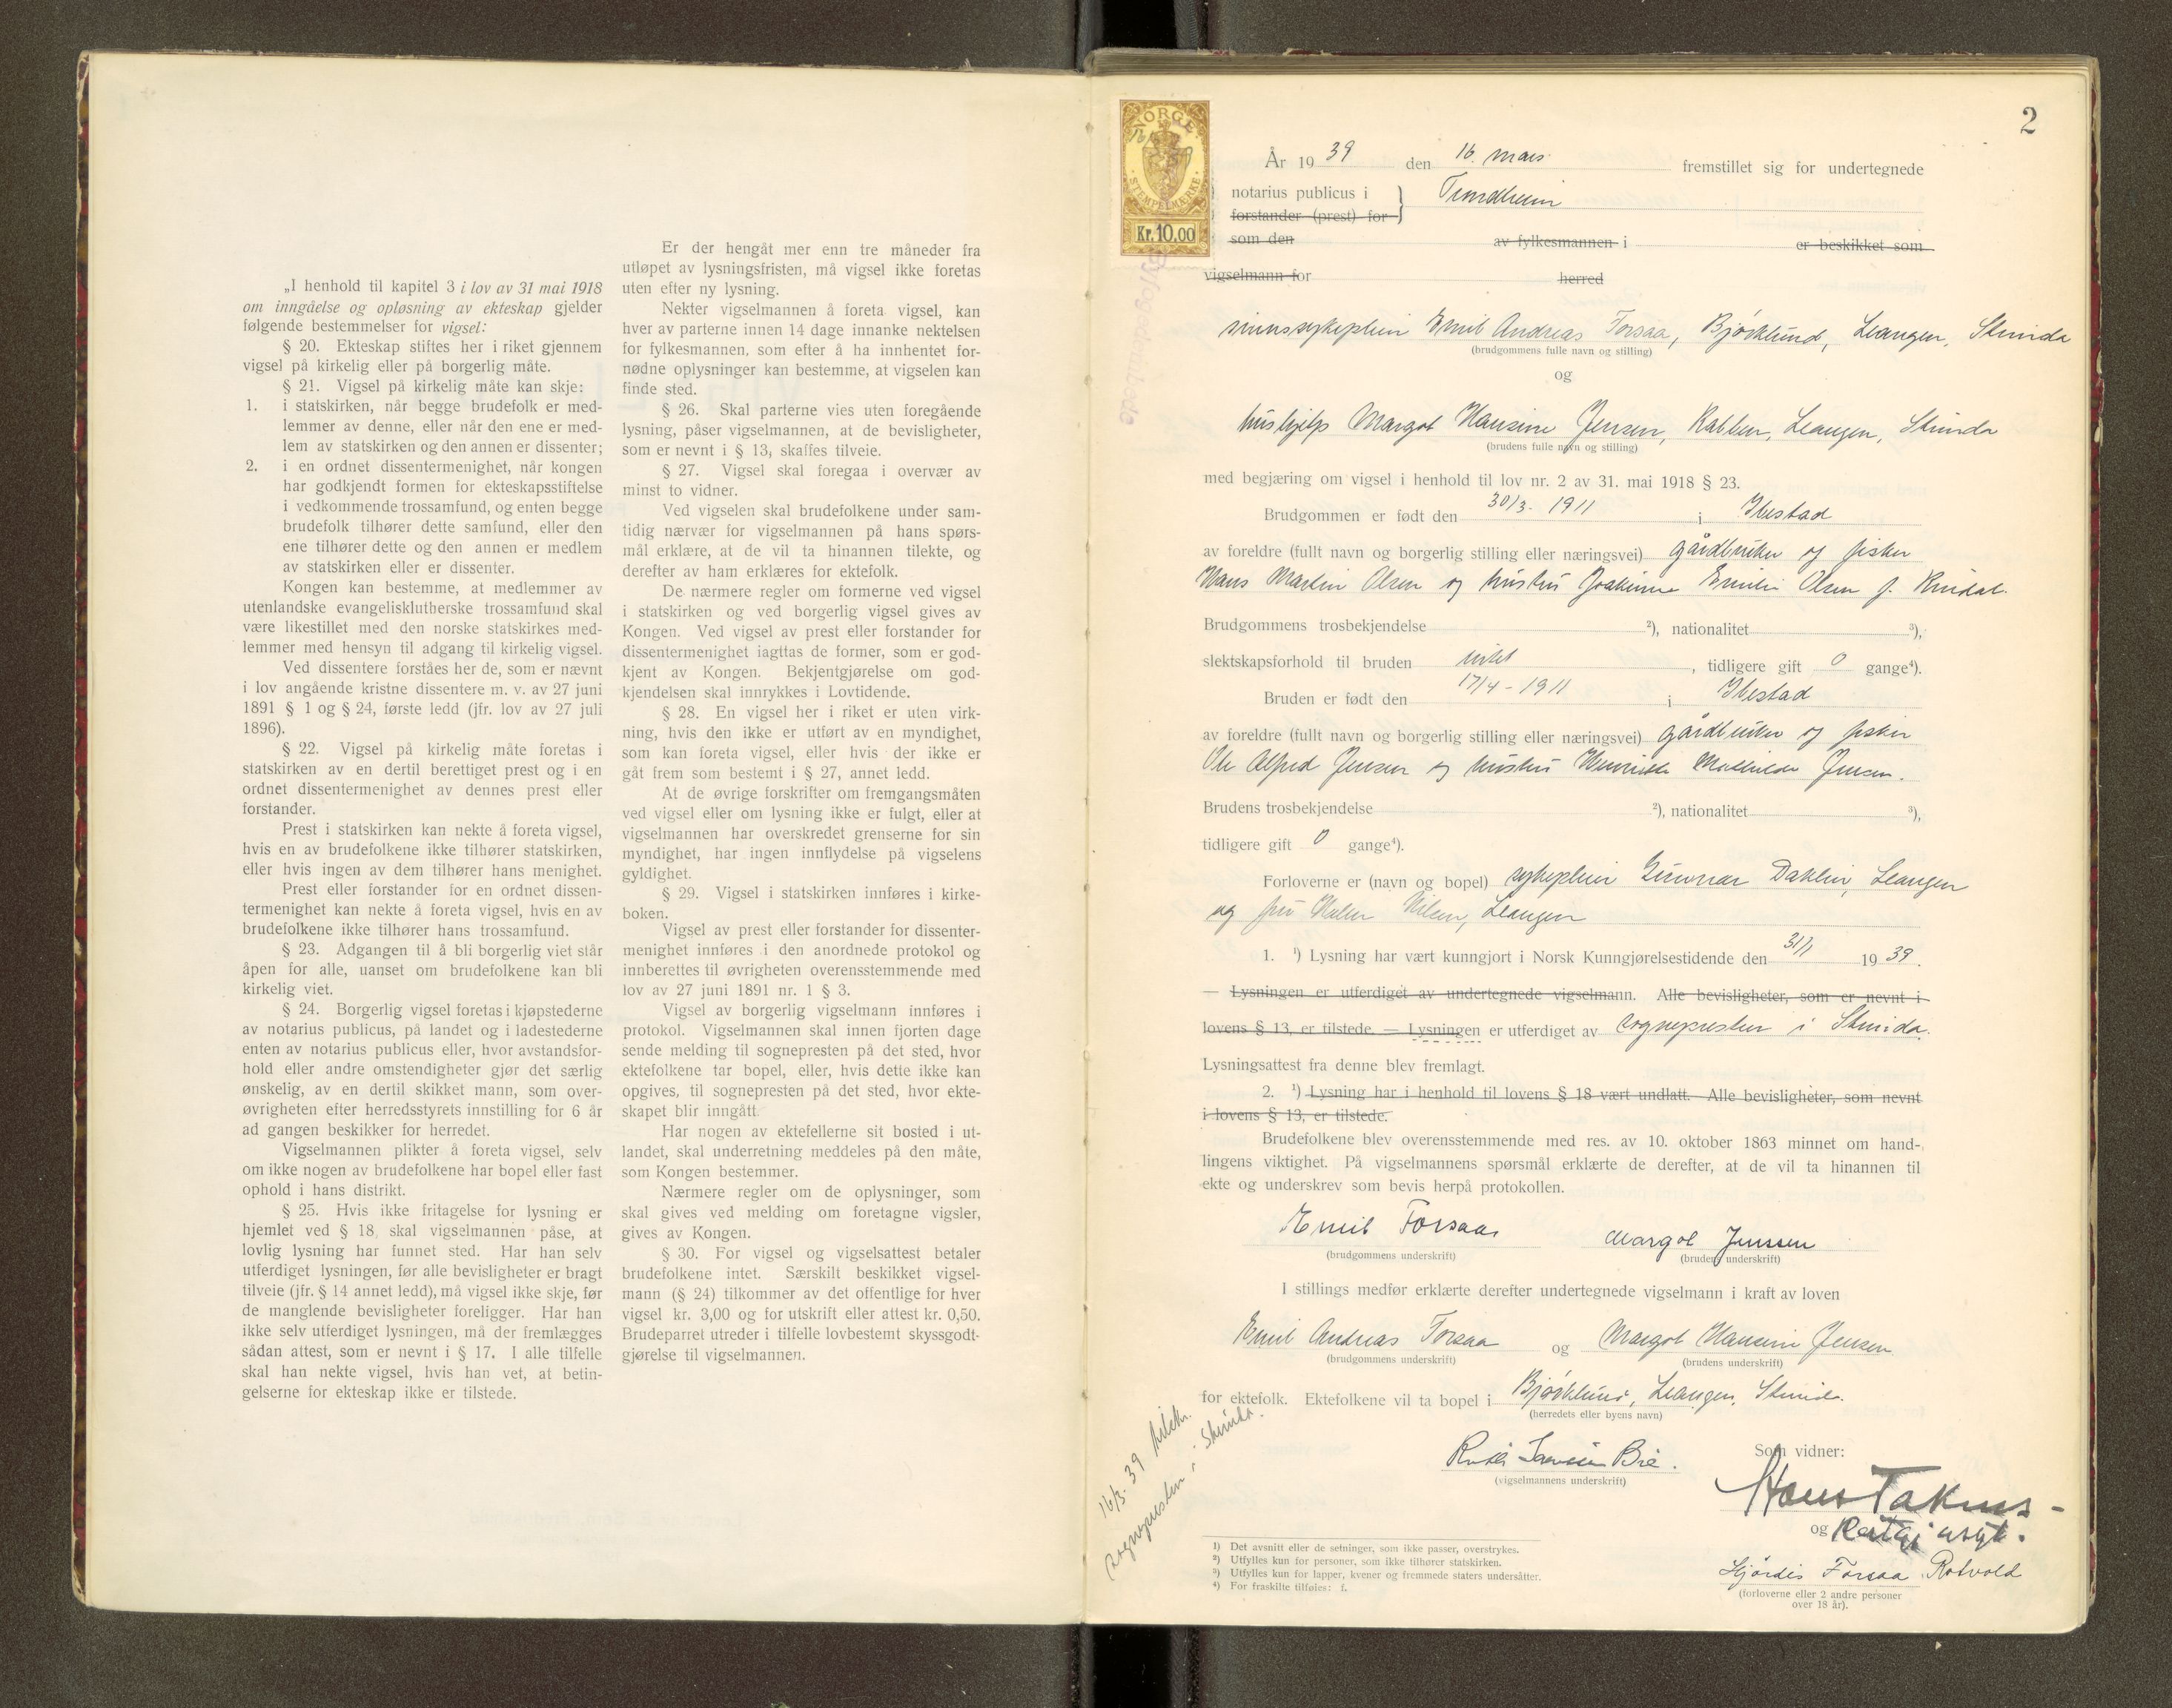 „I henhold til kapitel 3 i lov av 31 mai 1918
om inngåelse og opløsning av ekteskap gjelder
følgende bestemmelser for vigsel:
§ 20. Ekteskap stiftes her i riket gjennem
vigsel på kirkelig eller på borgerlig måte.
§ 21. Vigsel på kirkelig måte kan skje:
1. i statskirken, når begge brudefolk er med-
lemmer av denne, eller når den ene er med-
lem av statskirken og den annen er dissenter;
2. i en ordnet dissentermenighet, når kongen
har godkjendt formen for ekteskapsstiftelse
i vedkommende trossamfund, og enten begge
brudefolk tilhører dette samfund, eller den
ene tilhører dette og den annen er medlem
av statskirken eller er dissenter.
Kongen kan bestemme, at medlemmer av
utenlandske evangelisklutherske trossamfund skal
være likestillet med den norske statskirkes med-
lemmer med hensyn til adgang til kirkelig vigsel.
Ved dissentere forståes her de, som er nævnt
i lov angående kristne dissentere m. v. av 27 juni
1891 § 1 og § 24, første ledd (jfr. lov av 27 juli
1896).
§ 22. Vigsel på kirkelig måte foretas i
statskirken av en dertil berettiget prest og i en
ordnet dissentermenighet av dennes prest eller
forstander.
Prest i statskirken kan nekte å foreta vigsel,
hvis en av brudefolkene ikke tilhører statskirken,
eller hvis ingen av dem tilhører hans menighet.
Prest eller forstander for en ordnet dissen-
termenighet kan nekte å foreta vigsel, hvis en av
brudefolkene ikke tilhører hans trossamfund.
§ 23. Adgangen til å bli borgerlig viet står
åpen for alle, uanset om brudefolkene kan bli
kirkelig viet.
§ 24. Borgerlig vigsel foretas i kjøpstederne
av notarius publicus, på landet og i ladestederne
enten av notarius publicus eller, hvor avstandsfor-
hold eller andre omstendigheter gjør det særlig
ønskelig, av en dertil skikket mann, som over-
øvrigheten efter herredsstyrets innstilling for 6 år
ad gangen beskikker for herredet.
Vigselmannen plikter å foreta vigsel, selv
om ikke nogen av brudefolkene har bopel eller fast
ophold i hans distrikt.
§ 25. Hvis ikke fritagelse for lysning er
hjemlet ved § 18, skal vigselmannen påse, at
lovlig lysning har funnet sted. Har han selv
utferdiget lysningen, før alle bevisligheter er bragt
tilveie (jfr. § 14 annet ledd), må vigsel ikke skje, før
de manglende bevisligheter foreligger. Har han
ikke selv utferdiget lysningen, må der fremlægges
sådan attest, som er nevnt i § 17. I alle tilfelle
skal han nekte vigsel, hvis han vet, at betin-
gelserne for ekteskap ikke er tilstede.
Er der hengåt mer enn tre måneder fra
utløpet av lysningsfristen, må vigsel ikke foretas
uten efter ny lysning.
Nekter vigselmannen å foreta vigsel, kan
hver av parterne innen 14 dage innanke nektelsen
for fylkesmannen, som efter å ha innhentet for-
nødne oplysninger kan bestemme, at vigselen kan
finde sted.
§ 26. Skal parterne vies uten foregående
lysning, påser vigselmannen, at de bevisligheter,
som er nevnt i § 13, skaffes tilveie.
§ 27. Vigsel skal foregaa i overvær av
minst to vidner.
Ved vigselen skal brudefolkene under sam-
tidig nærvær for vigselmannen på hans spørs-
mål erklære, at de vil ta hinannen tilekte, og
derefter av ham erklæres for ektefolk.
De nærmere regler om formerne ved vigsel
i statskirken og ved borgerlig vigsel gives av
Kongen. Ved vigsel av prest eller forstander for
dissentermenighet iagttas de former, som er god-
kjent av Kongen. Bekjentgjørelse om god-
kjendelsen skal innrykkes i Lovtidende.
§ 28. En vigsel her i riket er uten virk-
ning, hvis den ikke er utført av en myndighet,
som kan foreta vigsel, eller hvis der ikke er
gåt frem som bestemt i § 27, annet ledd.
At de øvrige forskrifter om fremgangsmåten
ved vigsel eller om lysning ikke er fulgt, eller at
vigselmannen har overskredet grenserne for sin
myndighet, har ingen innflydelse på vigselens
gyldighet.
§ 29. Vigsel i statskirken innføres i kirke-
boken.
Vigsel av prest eller forstander for dissenter-
menighet innføres i den anordnede protokol og
innberettes til øvrigheten overensstemmende med
lov av 27 juni 1891 nr. 1 § 3.
Vigsel av borgerlig vigselmann innføres i
protokol. Vigselmannen skal innen fjorten dage
sende melding til sognepresten på det sted, hvor
ektefolkene tar bopel, eller, hvis dette ikke kan
opgives, til sognepresten på det sted, hvor ekte-
skapet blir inngått.
Har nogen av ektefellerne sit bosted i ut-
landet, skal underretning meddeles på den måte,
som Kongen bestemmer.
Nærmere regler om de oplysninger, som
skal gives ved melding om foretagne vigsler,
gives av Kongen.
§ 30. For vigsel og vigselsattest betaler
brudefolkene intet. Særskilt beskikket vigsel-
mann (§ 24) tilkommer av det offentlige for hver
vigsel kr. 3,00 og for utskrift eller attest kr. 0,50.
Brudeparret utreder i tilfelle lovbestemt skyssgodt-
gjørelse til vigselmannen.
2
NORGE
STEMPELMÆRKE
Kr. 10.00
År 1939 den 16. mars fremstillet sig for undertegnede
notarius publicus i } Trondheim
forstander (prest) for
som den av fylkesmannen i er beskikket som
vigselmann for herred
sinnssykepleier Emil Andreas Forsaa, Bjørklund, Leangen, Strinda
(brudgommens fulle navn og stilling)
og
hushjelp Margot Hansine Jensen, Leangen, Strinda
(brudens fulle navn og stilling)
med begjæring om vigsel i henhold til lov nr. 2 av 31. mai 1918 § 23.
Brudgommen er født den 30/3 - 1911 i Ibestad
av foreldre (fullt navn og borgerlig stilling eller næringsvei) gårdbruker og fisker
Hans Martin Olsen og hustru Joakimine Emilie Olsen f.
Brudgommens trosbekjendelse ²), nationalitet ³),
slektskapsforhold til bruden intet, tidligere gift 0 gange⁴).
Bruden er født den 17/4 - 1911 i Ibestad
av foreldre (fullt navn og borgerlig stilling eller næringsvei) gårdbruker og fisker
Ole Alfred Jensen og hustru Henriette Mathilde Jensen.
Brudens trosbekjendelse ²), nationalitet ³),
tidligere gift 0 gange⁴).
Forloverne er (navn og bopel) sykepleier Gunnar Dahlin, Leangen
og fru Nilsen, Leangen
1. ¹) Lysning har vært kunngjort i Norsk Kunngjørelsestidende den 31/1 1939.
— Lysningen er utferdiget av undertegnede vigselmann. Alle bevisligheter, som er nevnt i
lovens § 13, er tilstede. — Lysningen er utferdiget av sognepresten i Strinda.
Lysningsattest fra denne blev fremlagt.
2. ¹) Lysning har i henhold til lovens § 18 vært undlatt. Alle bevisligheter, som nevnt
i lovens § 13, er tilstede.
Brudefolkene blev overensstemmende med res. av 10. oktober 1863 minnet om hand-
lingens viktighet. På vigselmannens spørsmål erklærte de derefter, at de vil ta hinannen til
ekte og underskrev som bevis herpå protokollen.
Emil Forsaa Margot Jenssen
(brudgommens underskrift) (brudens underskrift)
I stillings medfør erklærte derefter undertegnede vigselmann i kraft av loven
Emil Andreas Forsaa og Margot Hansine Jensen
(brudgommens underskrift) (brudens underskrift)
for ektefolk. Ektefolkene vil ta bopel i Bjørklund, Leangen, Strinda.
(herredets eller byens navn)
Som vidner:
(vigselmannens underskrift)
Hans
og
Hjördis Forsaa Rotvold
(forloverne eller 2 andre personer
over 18 år).
16/3. 39
sognepresten i Strinda.
¹) Det avsnitt eller de setninger, som ikke passer, overstrykes.
²) Utfylles kun for personer, som ikke tilhører statskirken.
³) Utfylles kun for lapper, kvener og fremmede staters undersåtter.
⁴) For fraskilte tilføies: f.